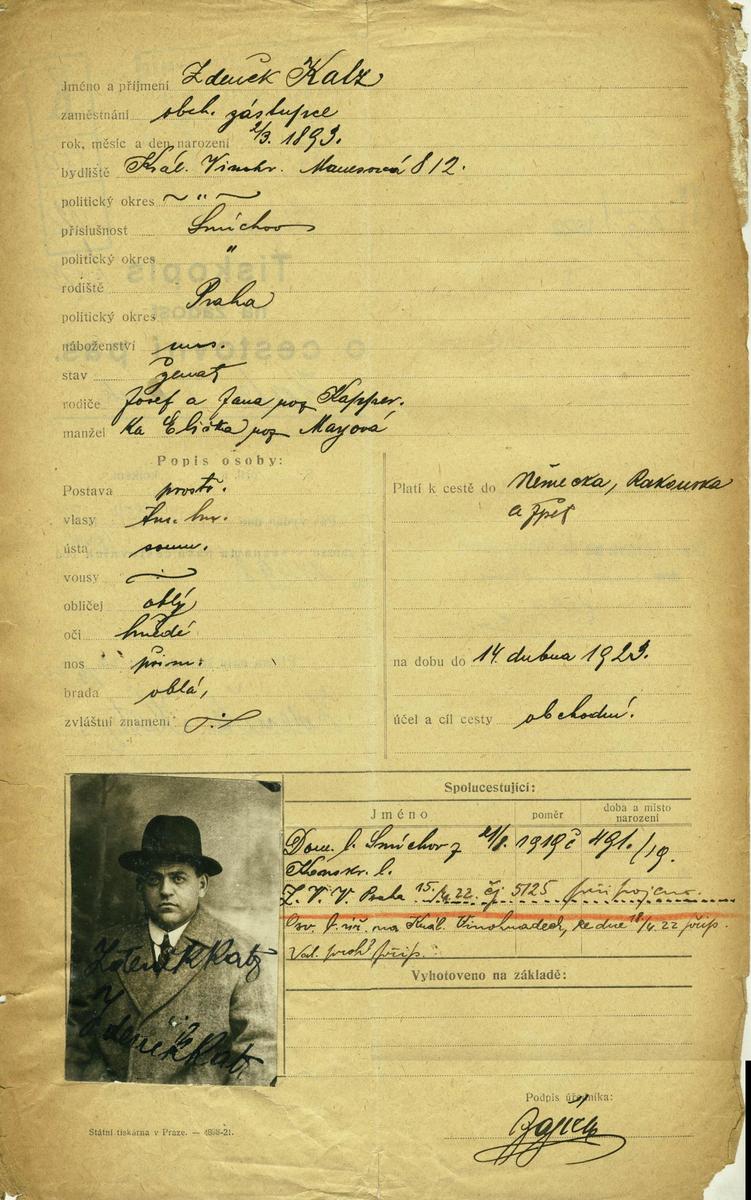 Jméno a příjmení Zdeněk Katz
zaměstnání obch. zástupce
rok, měsíc a den narození 2/3. 1893.
bydliště Král. Vinohr. Manesová 812.
politický okres ~ " ~
příslušnost Smíchov
politický okres "
rodiště Praha
politický okres
náboženství
stav ženat
rodiče Josef a Jana roz Kapper.
manžel ka Eliška roz Mayová
Popis osoby:
Postava prostř.
vlasy
ústa soum.
vousy
obličej oblý
oči hnědé
nos přim.
brada oblá,
zvláštní znamení
Platí k cestě do Německa, Rakouska
a zpět
na dobu do 14. dubna 1923.
účel a cíl cesty obchodní.
Spolucestující:
Jméno poměr doba a místo narození
Dom. l. Smíchov z 21/8. 1919 č 491./19.
Konskr. l.
Z. V. V. Praha 15./4. 22 čj 5125
na Král. Vinohradech, ze dne 18/4. 22 přip.
přip.
Vyhotoveno na základě:
Zdeněk Katz
Zdeněk Katz
Podpis úředníka:
Státní tiskárna v Praze. — 4898-21.